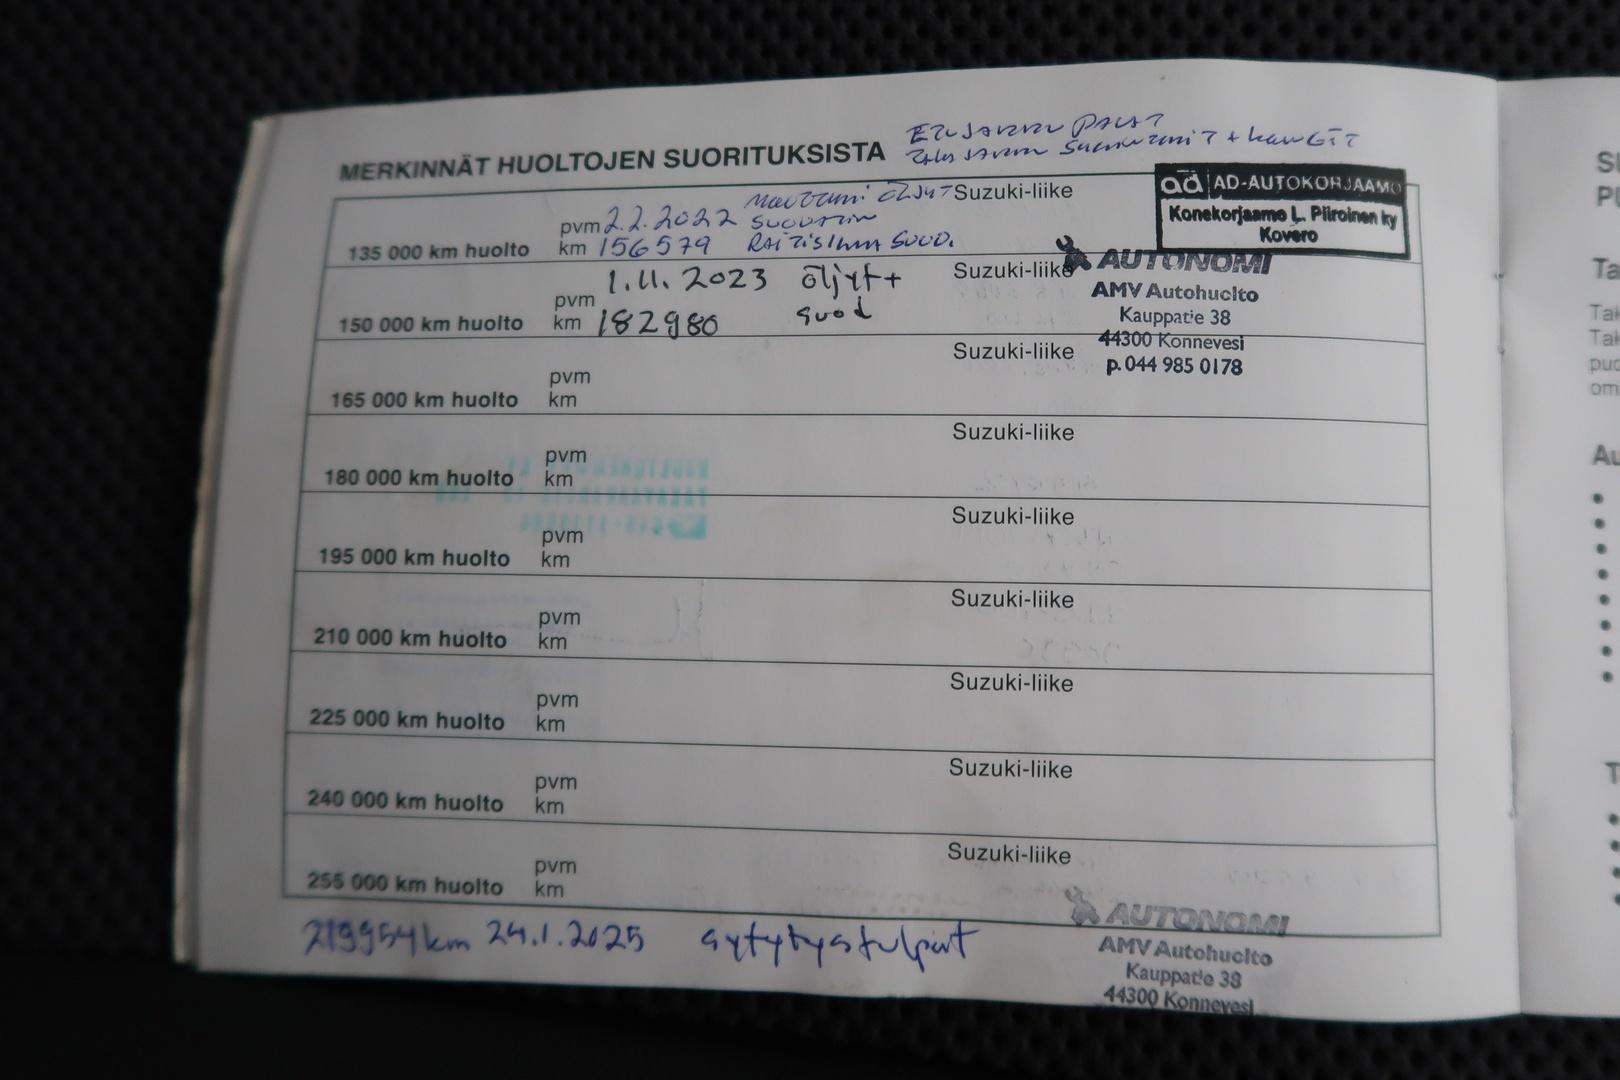 ETUJARRU PALAT
MERKINNÄT HUOLTOJEN SUORITUKSISTA
TAKAJARRU + KENGÄT
ad AD-AUTOKORJAAMO
Konekorjaamo L. Piiroinen ky
Kovero
135 000 km huolto pvm 2.2.2022 Moottori öljyt Suzuki-liike
SUODATIN
km 156579 RAITISILMA SUOD.
150 000 km huolto pvm 1.11.2023 öljyt + Suzuki-liike
km 182980 suod
AUTONOMI
AMV Autohuolto
Kauppatie 38
44300 Konnevesi
p. 044 985 0178
165 000 km huolto pvm Suzuki-liike
km
180 000 km huolto pvm Suzuki-liike
km
195 000 km huolto pvm Suzuki-liike
km
210 000 km huolto pvm Suzuki-liike
km
225 000 km huolto pvm Suzuki-liike
km
240 000 km huolto pvm Suzuki-liike
km
255 000 km huolto pvm Suzuki-liike
km
219954 km 24.1.2025 sytytystulpat
AUTONOMI
AMV Autohuolto
Kauppatie 38
44300 Konnevesi
Ta
Tak
Tak
puo
om
Au
T